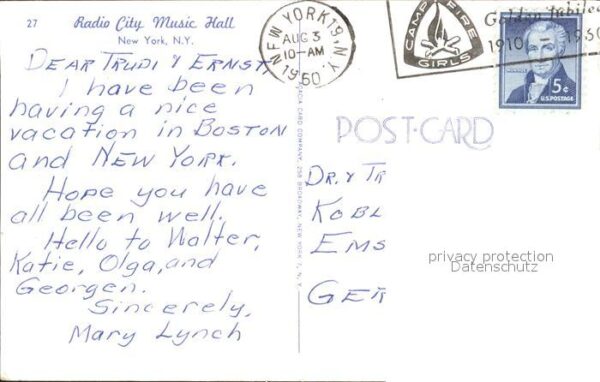 27 Radio City Music Hall
New York, N.Y.
DEAR TRUDI & ERNST,
I have been
having a nice
vacation in BOSTON
and NEW YORK.
Hope you have
all been well.
Hello to Walter,
Katie, Olga, and
Georgen.
Sincerely,
Mary Lynch
NEW YORK 19, N.Y.
AUG 3
10-AM
1960
CAMP FIRE
GIRLS
Golden Jubilee
1910 1960
5¢
U.S. POSTAGE
POST-CARD
CARD COMPANY, 258 BROADWAY, NEW YORK 7, N.Y.
DR. & TR
KOBL
EMS
GER
privacy protection
Datenschutz